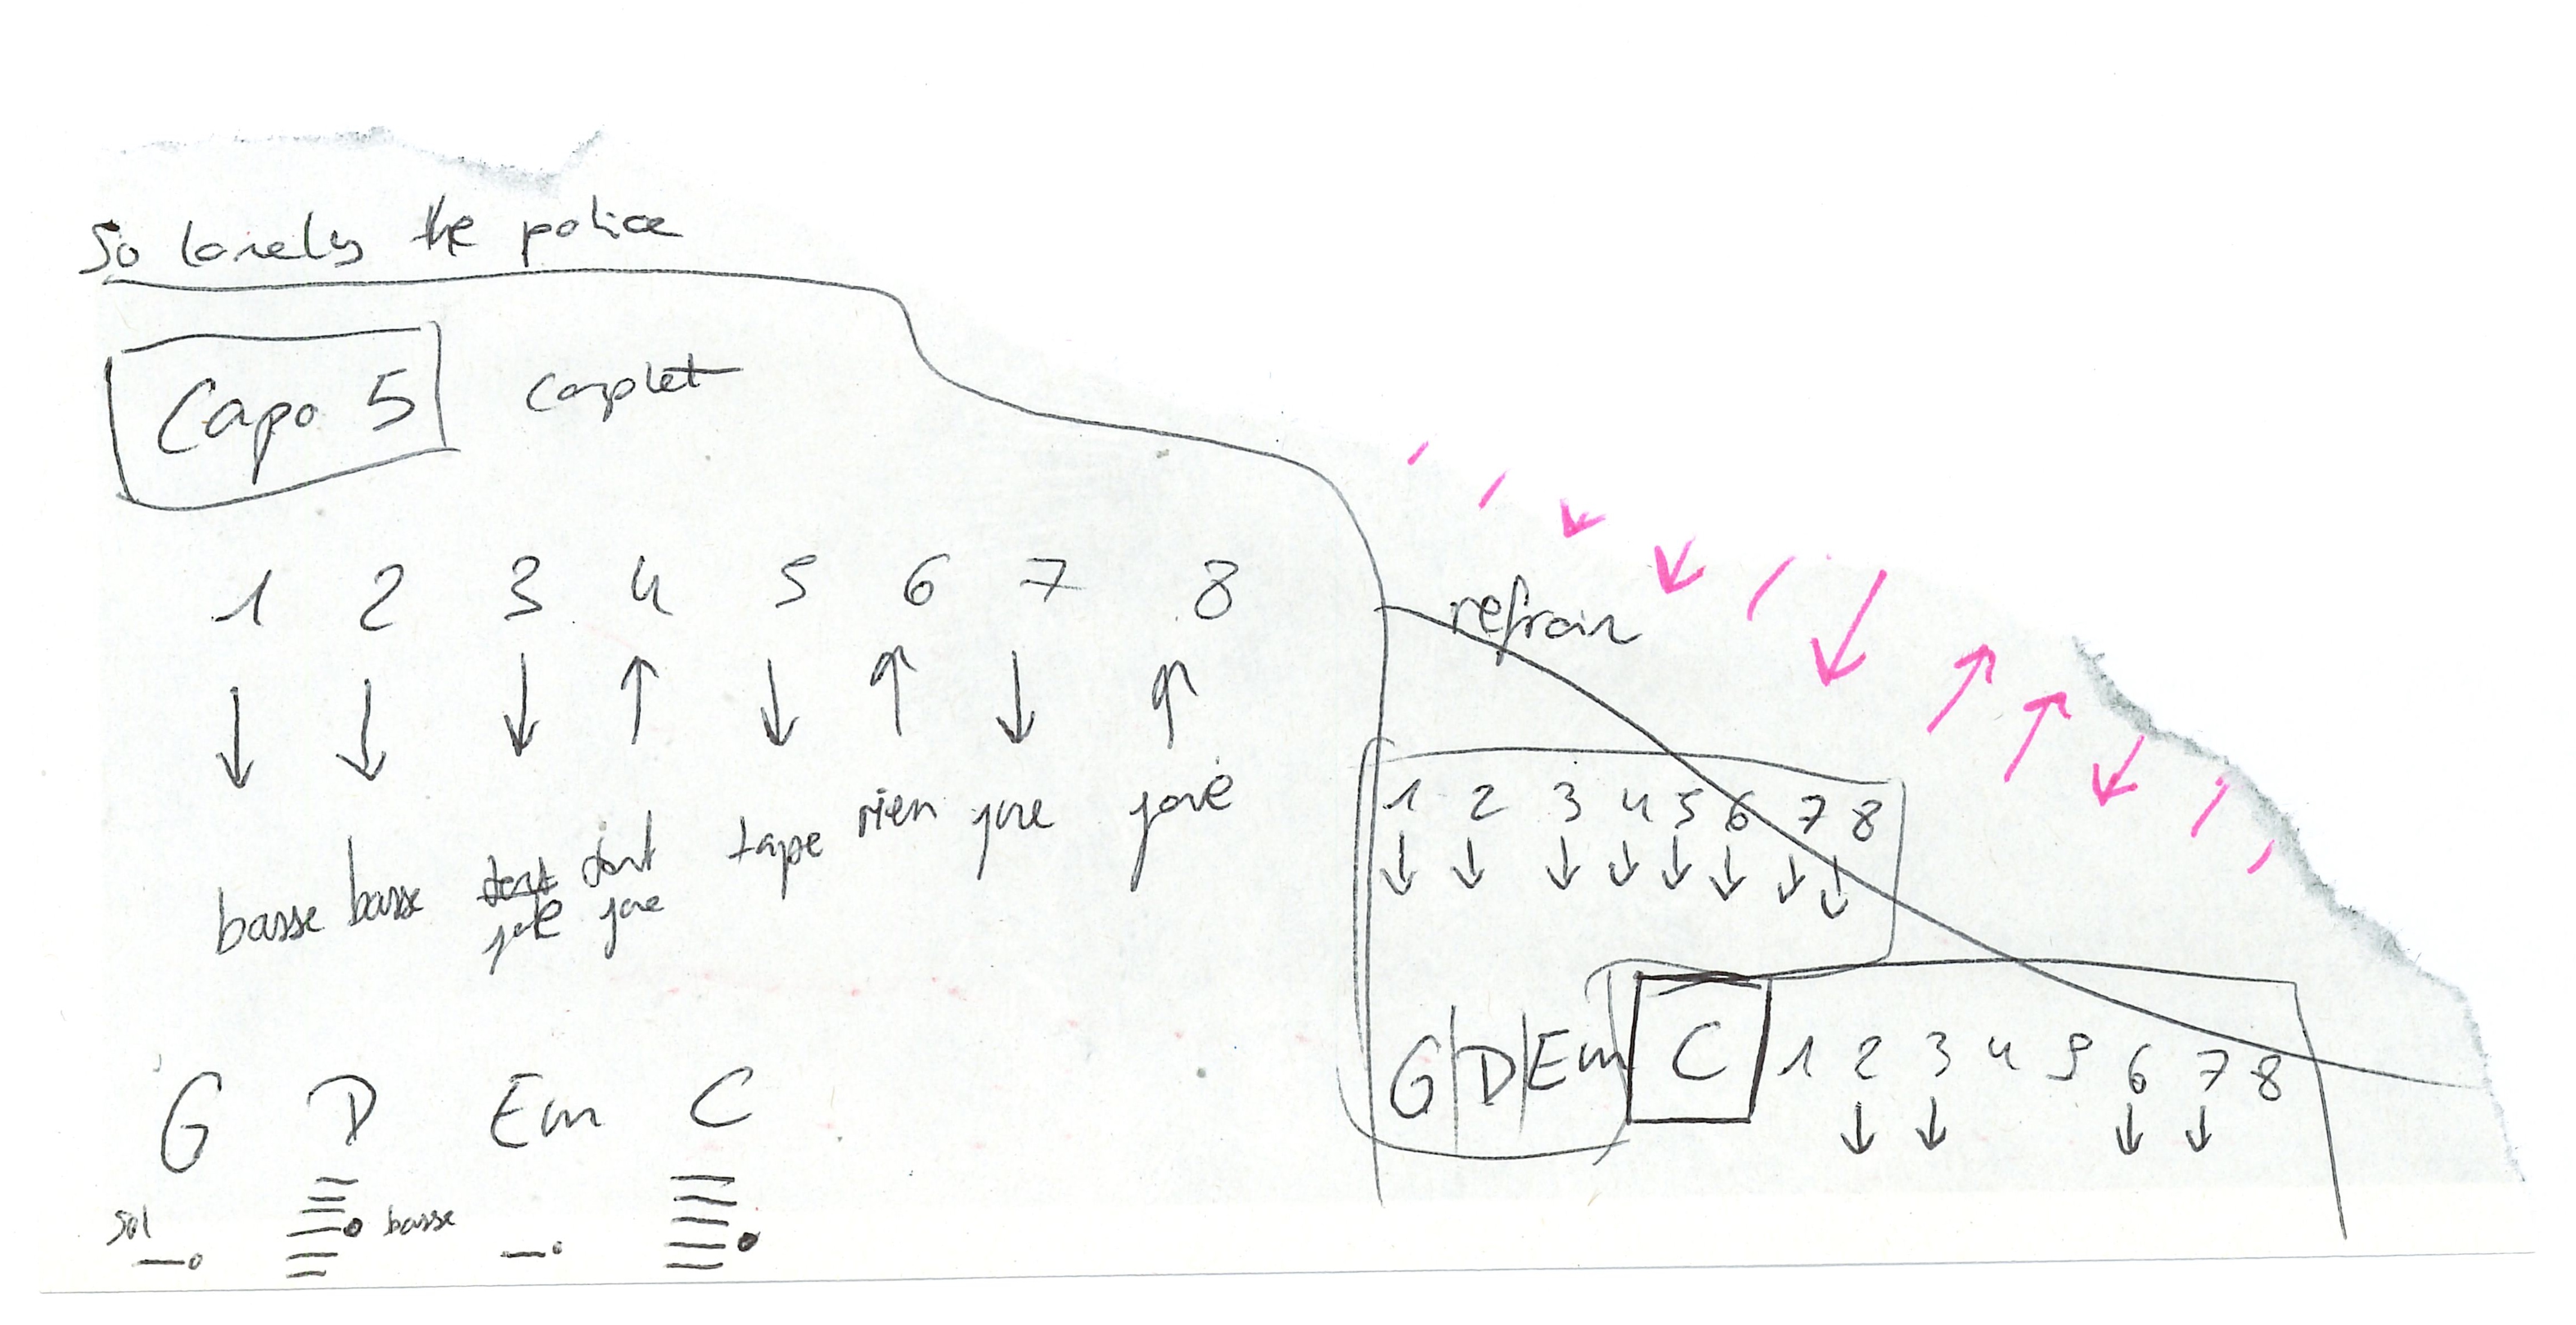 So lonely the police
Capo 5 couplet
1 2 3 4 5 6 7 8
↓ ↓ ↓ ↑ ↓ ↑ ↓ ↑
basse basse joue tout joue tape rien joue joue
G D Em C
sol basse
refrain
1 2 3 4 5 6 7 8
↓ ↓ ↓ ↓ ↓ ↓ ↓ ↓
G D Em C 1 2 3 4 5 6 7 8
↓ ↓ ↓ ↓